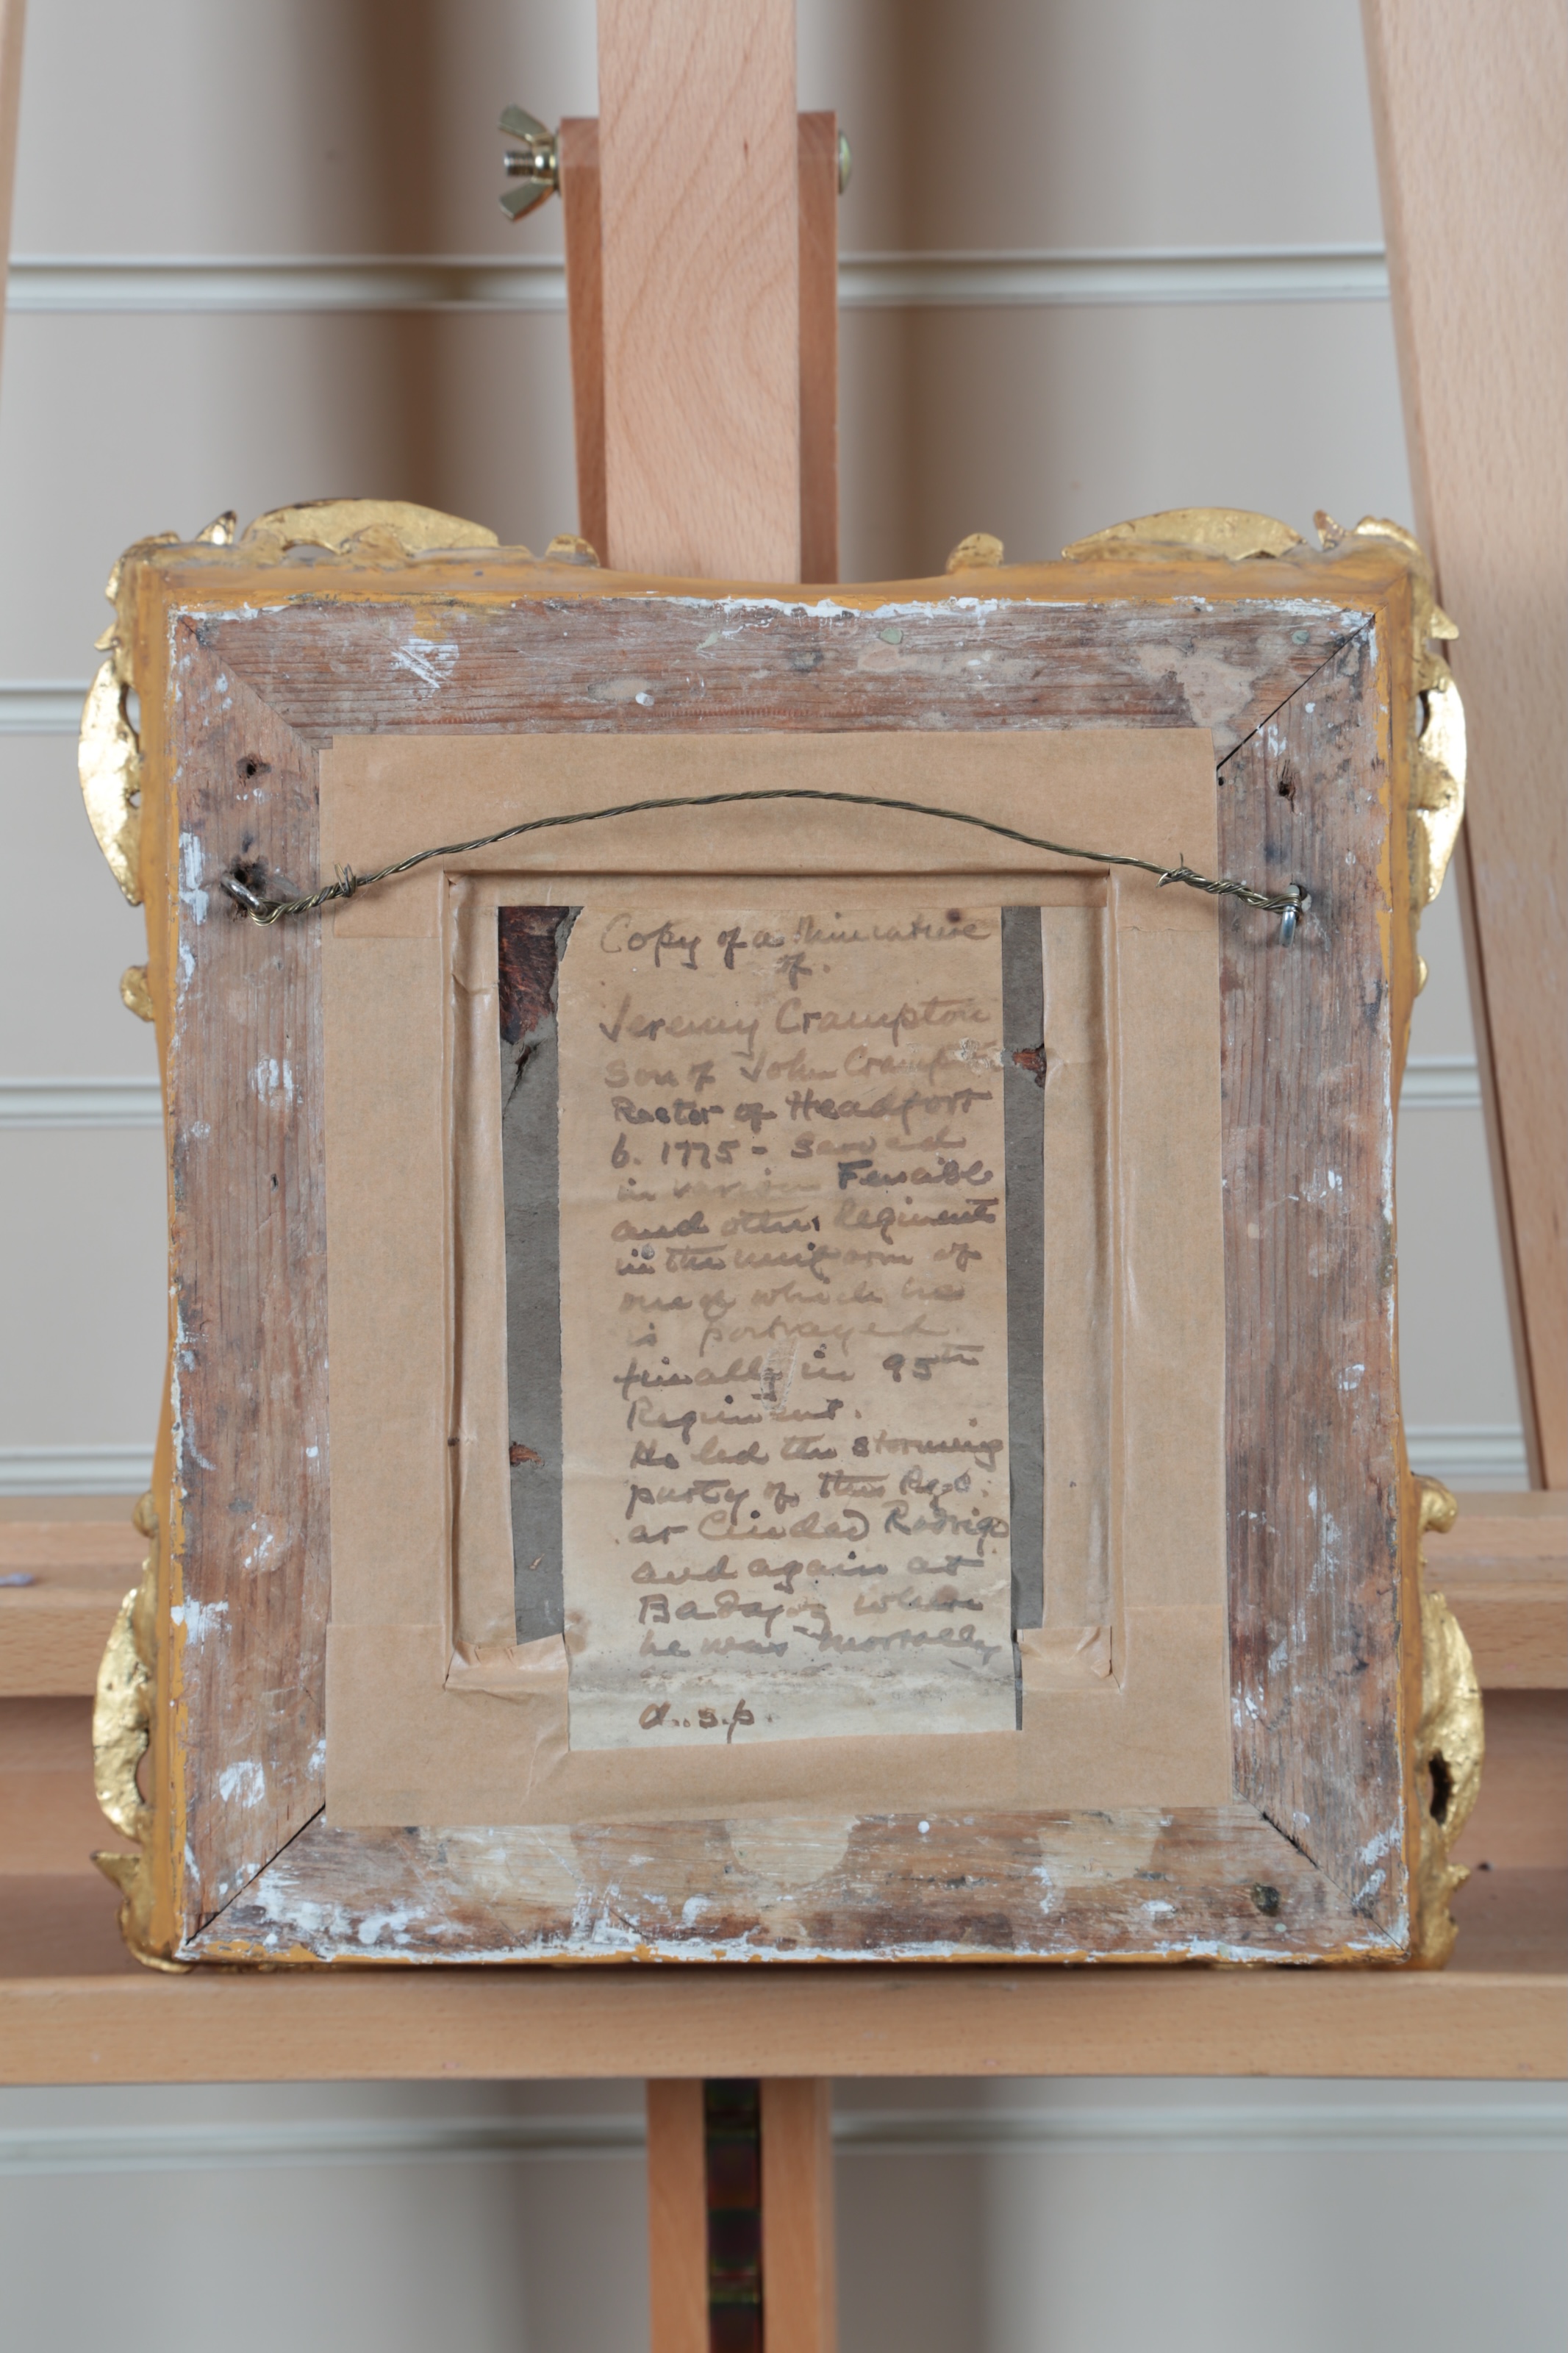 Copy of a Miniature
of.
Jeremy Crampton
Son of John Crampton
Rector of Headfort
b. 1775 - Served
in various Fencible
and other Regiments
in the uniform of
one of which he
is portrayed
finally in 95th
Regiment.
He led the storming
party of this Regt.
at Ciudad Rodrigo
and again at
Badajoz where
he was mortally
d.s.p.